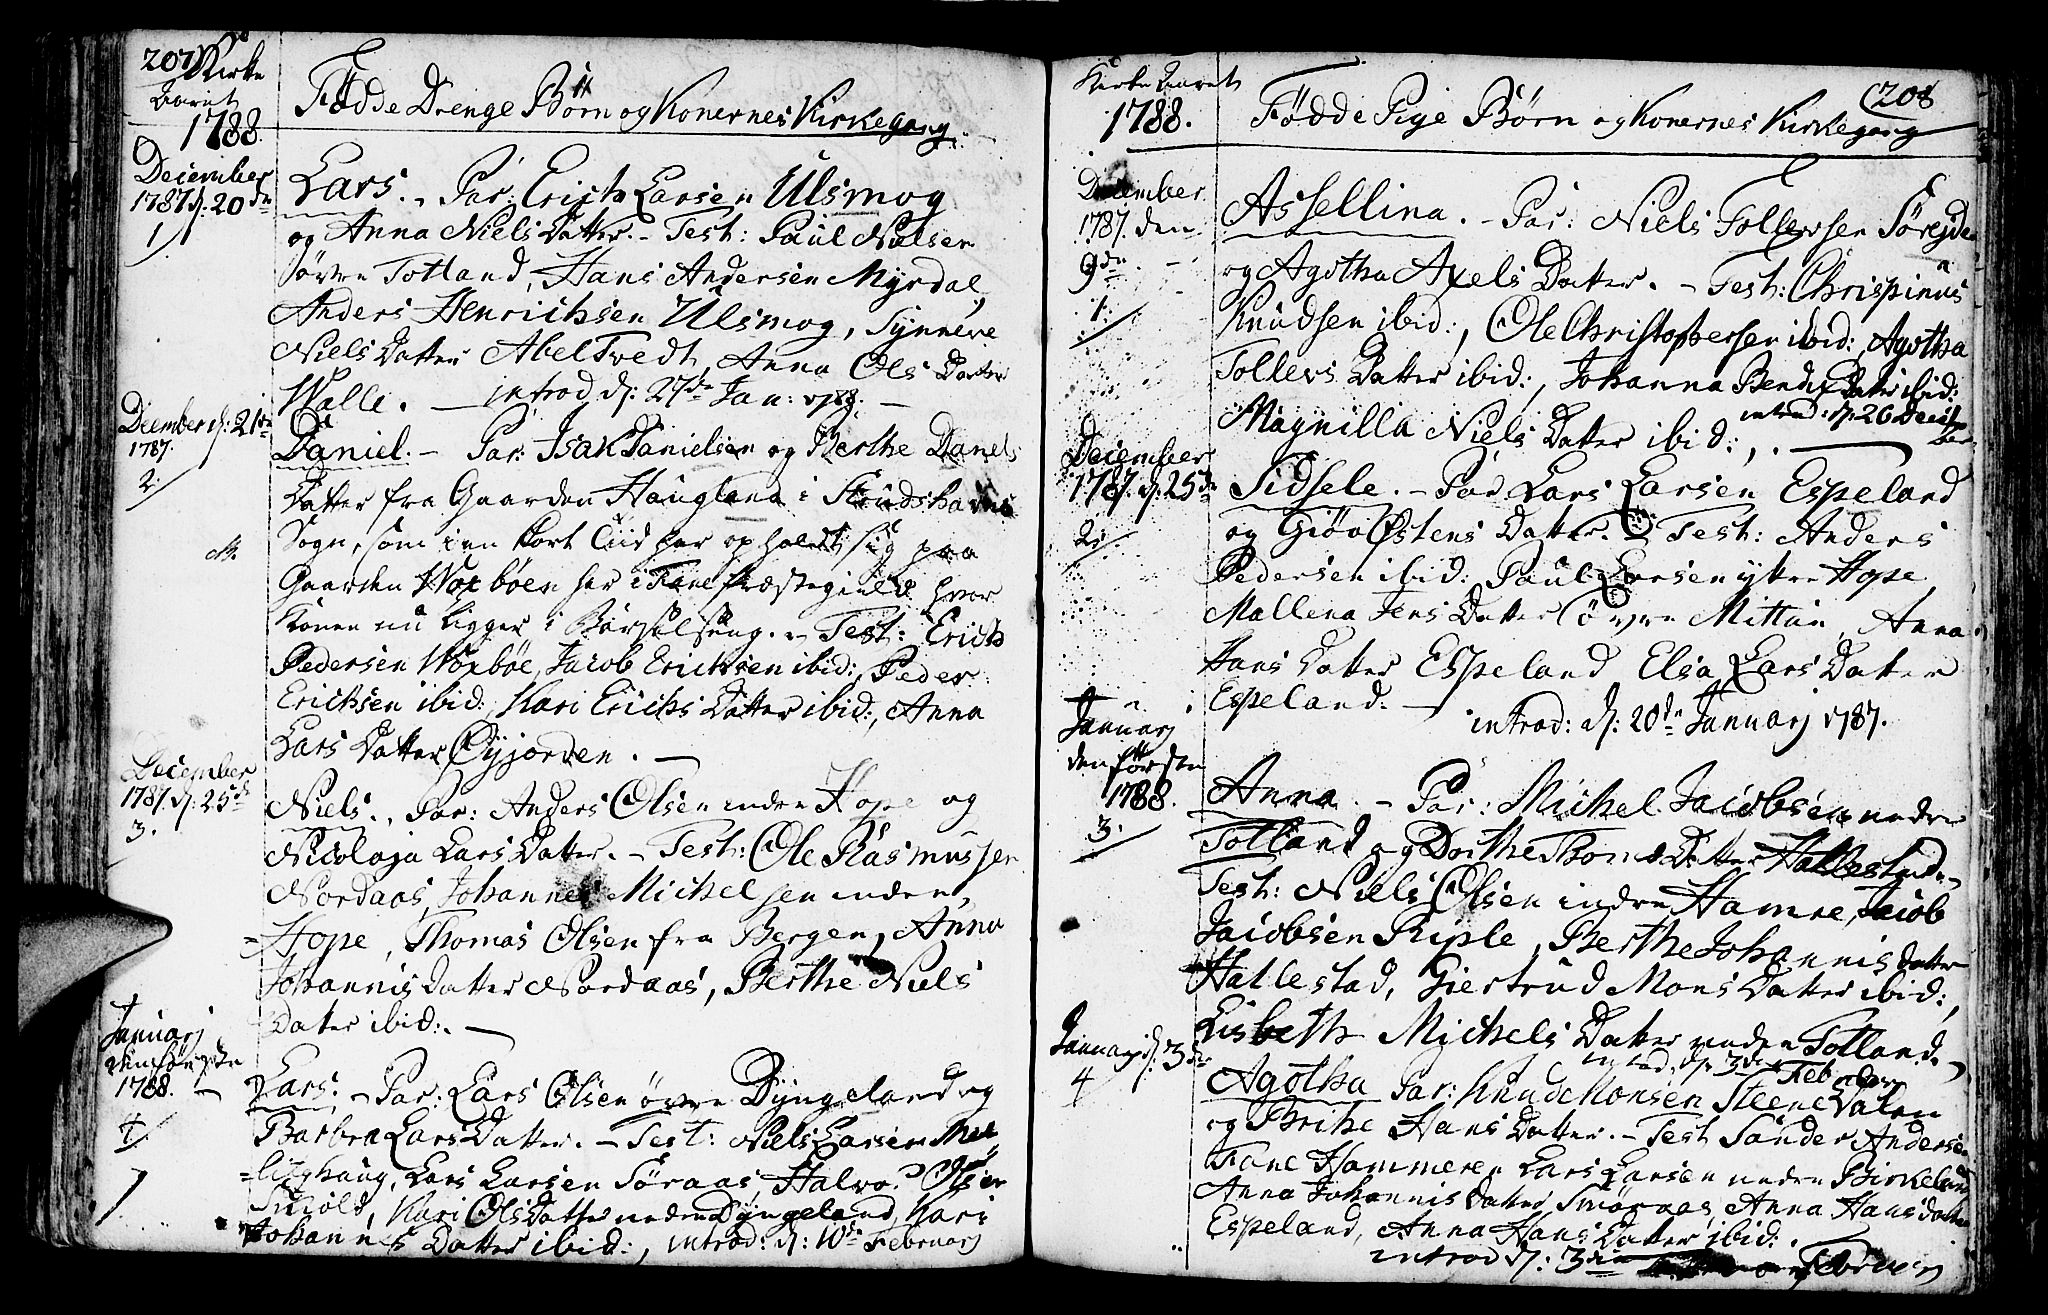 207 Kirke
Aaret
1788.
Fødde Drenge Børn og Konernes Kirkegang.
December
1787 d: 20de
1/
Lars. - Par: Erich Larsen Ulsmog
og Anna Niels Datter. - Test: Paul Nielsen
øvre Totland, Hans Andersen Myrdal,
Anders Henrichsen Ulsmog, Synneve
Niels Datter Abeltvedt, Anna Ols Datter
Walle. - introd d: 27de Jan: 1788. -
December d: 21de
1787.
2/
Daniel. - Par: Isak Danielsen og Berthe Danels
Datter fra Gaarden Haugland i Strudshavns
Sogn, som i en kort Tiid har opholdt sig paa
Gaarden Woxbøen her i Fane Præstegield hvor
Konen nu ligger i Barselseng. - Test: Erich
Pedersen Woxbøe, Jacob Erichsen ibid:, Peder
Erichsen ibid:, Kari Erichs Datter ibid:, Anna
Lars Datter Øyjorden. -
December
1787. d: 25de
3.
Niels. Par: Anders Olsen indre Hope og
Nicolaja Lars Datter. - Test: Ole Rasmussen
Nordaas, Johannes Michelsen indre
=Hope, Thomas Olsen fra Bergen, Anna
Johannis Datter Nordaas, Berthe Niels
Datter ibid:. -
Januarj
den første
1788. -
4/
Lars. - Par: Lars Olsen øvre Dyngeland og
Barbra Lars Datter. - Test: Niels Larsen
=haug, Lars Larsen Søraas, Halvor Olsen
Smiold, Kari Ols Datter nedre Dyngeland, Kari
Johannis Datter ibid:, introd: d: 10de Februarj
Kirke Aaret
1788.
208
Fødde Pige Børn og Konernes Kirkegang
December
1787. den
9de -
1./
Assellina. - Par: Niels Tollevsen Sørejde
og Agotha Axels Datter. - Test: Chrispinus
Knudsen ibid:, Ole Christophersen ibid:, Agotha
Tollevs Datter ibid:, Johanna Bendix Datter ibid:
Magnilla Niels Datter ibid:, . introd: d: 26 Decem
ber
December
1787. d: 25de
2./
Sidsele. - Par Lars Larsen Espeland
og Giøv Østens Datter. - Test: Anders
Pedersen ibid: Paul Larsen ytre Hope
Mallena Jens Datter øvre Mittun, Anna
Hans Datter Espeland, Elsa Lars Datter
Espeland. - introd: d: 20de Januarj 1787.
Januarj
den første
1788.
3./
Anna. - Par: Michel Jacobsen nedre
Totland og Dorthe Thoms Datter Hallestad. -
Test: Niels Olsen indre Hamre, Jacob
Jacobsen Riple, Berthe Johannis Datter
Hallestad, Giertrud Mons Datter ibid:,
Lisbeth Michels Datter neden Totland.
introd: d: 3de Februarj
Januarj d: 3de
4
Agotha Par: Knud Monsen Steens Dalen
og Brithe Hans Datter. - Test Sander Andersen
Fane Hammeren Lars Larsen nedre Birkeland
Anna Johannis Datter Smøraas, Anna Hans Datter
Espeland, Anna Hans Datter ibid:.
introd d: 3de Februarj